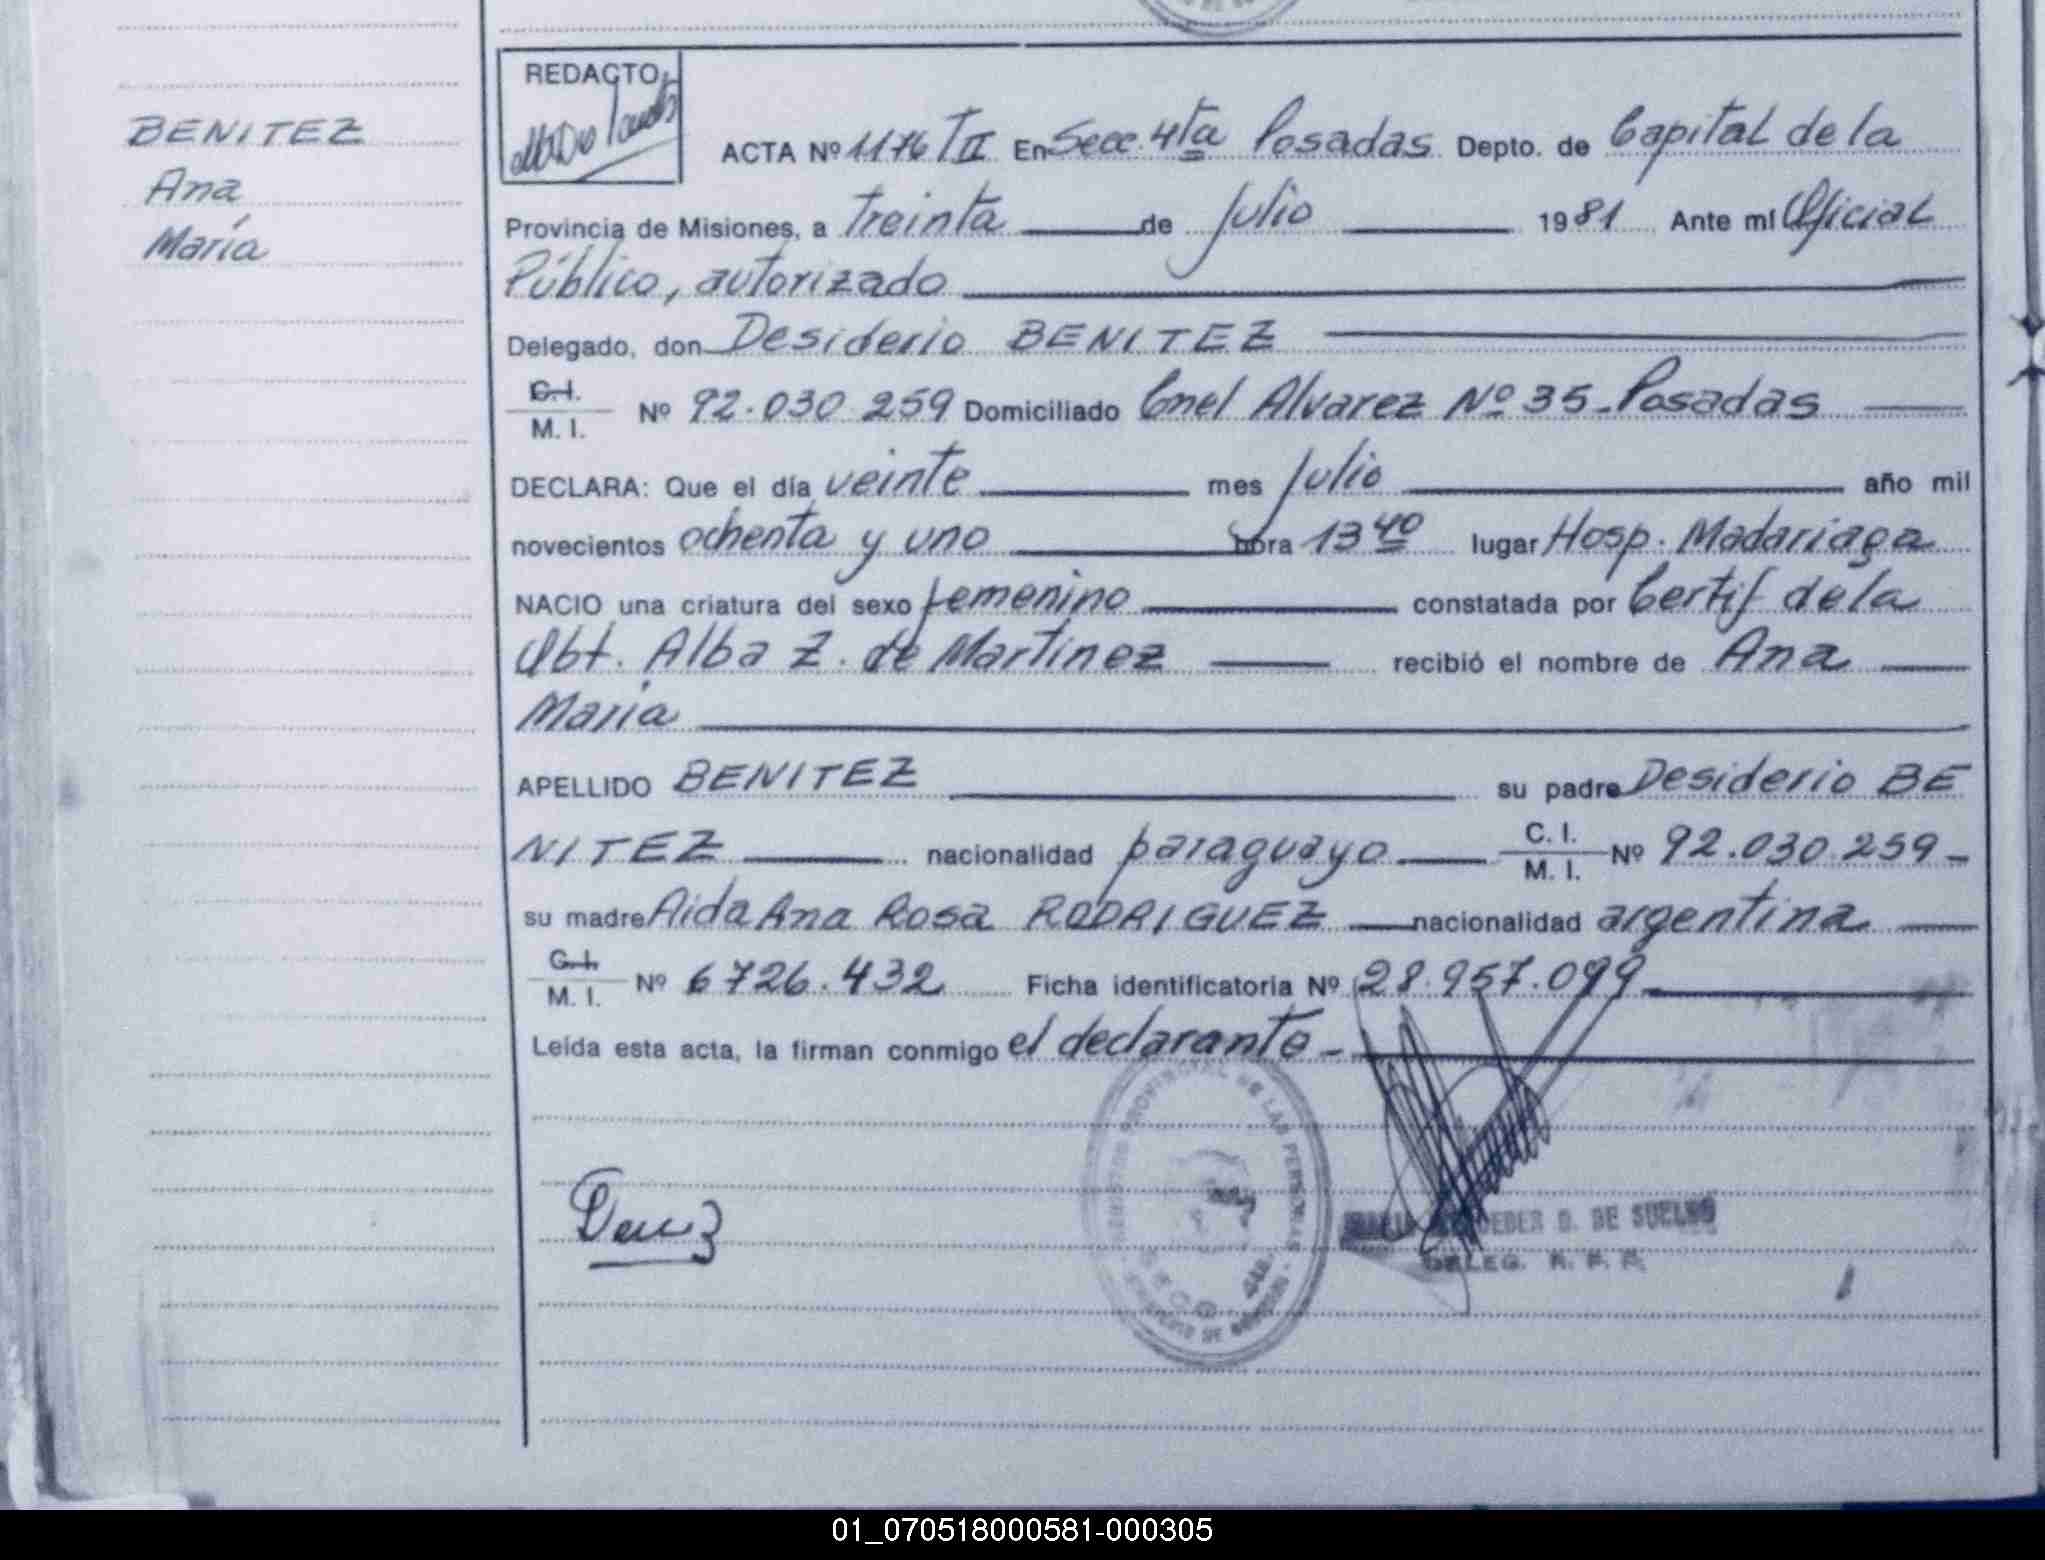 BENITEZ
Ana
María
REDACTO
ACTA Nº 1176 TII En Secc. 4ta Posadas Depto. de Capital de la
Provincia de Misiones, a treinta de julio 1981 Ante mí Oficial
Público, autorizado
Delegado, don Desiderio BENITEZ
C.I.
M. I. Nº 92.030.259 Domiciliado Cnel Alvarez Nº 35 - Posadas
DECLARA: Que el día veinte mes julio año mil
novecientos ochenta y uno hora 13 40 lugar Hosp. Madariaga
NACIO una criatura del sexo femenino constatada por Certif de la
Obt. Alba Z. de Martinez recibió el nombre de Ana
María
APELLIDO BENITEZ su padre Desiderio BE
NITEZ nacionalidad paraguayo C. I.
M. I. Nº 92.030.259 -
su madre Aida Ana Rosa RODRIGUEZ nacionalidad argentina
C.I.
M. I. Nº 6726.432 Ficha identificatoria Nº 28.957.099
Leída esta acta, la firman conmigo el declarante -
PROVINCIAL DE LAS PERSONAS
D. DE SUELDO
DELEG. R. P. P.
01_070518000581-000305